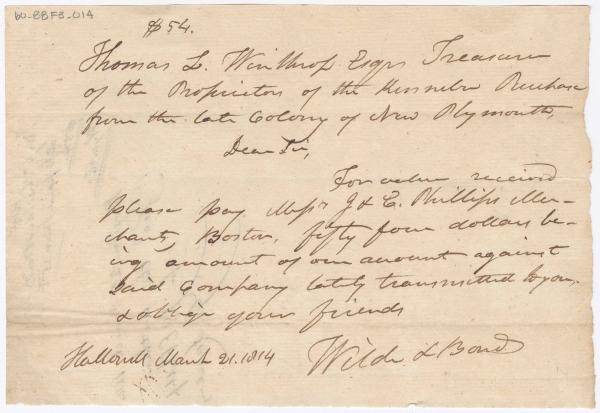 60-BBF3-014
$54.
Thomas L. Winthrop Esqr Treasurer
of the Proprietors of the Kennebec Purchase
from the late Colony of New Plymouth,
Dear Sir,
For value received
please pay Messrs J & E. Phillips Mer-
chants, Boston, fifty four dollars be-
ing amount of our amount against
Said Company lately transmitted to you.
& oblige your friends
Hallowell March 21. 1814 Wilde & Bond